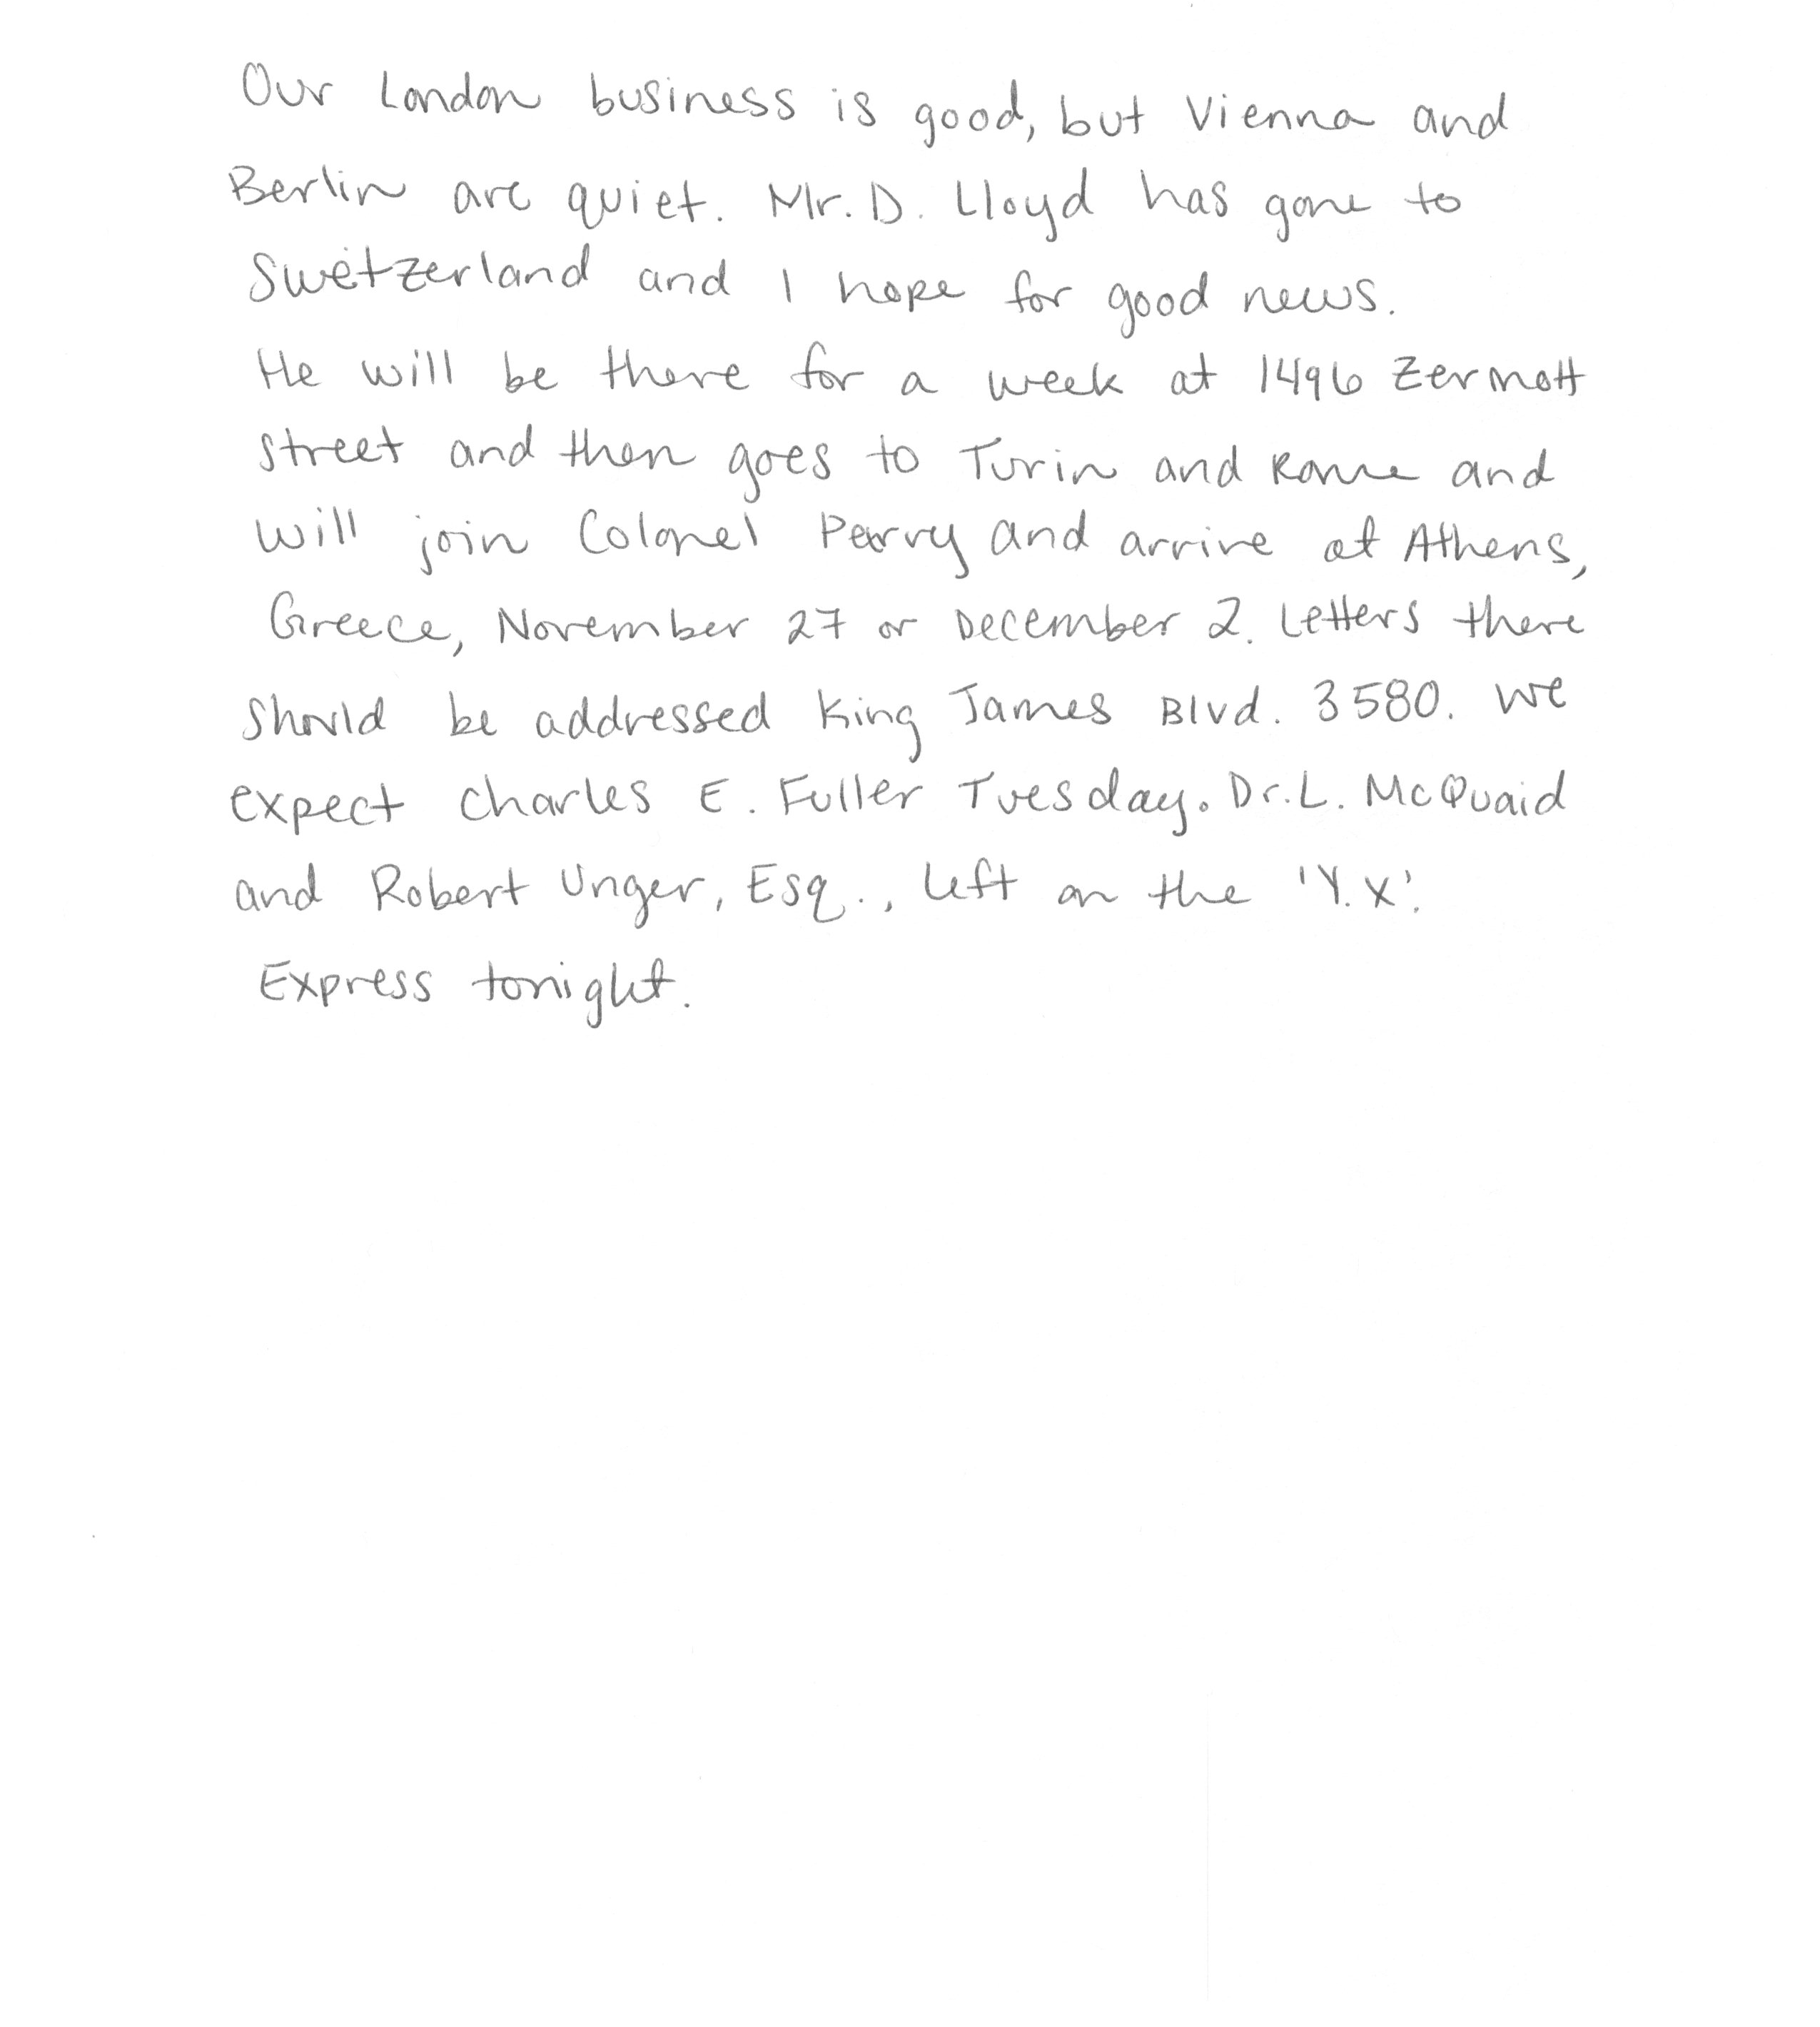 Our London business is good, but Vienna and
Berlin are quiet. Mr. D. Lloyd has gone to
Switzerland and I hope for good news.
He will be there for a week at 1496 Zermott
street and then goes to Turin and Rome and
will join Colonel Perry and arrive at Athens,
Greece, November 27 or December 2. Letters there
should be addressed King James Blvd. 3580. We
expect Charles E. Fuller Tuesday. Dr. L. McQuaid
and Robert Unger, Esq., left on the 'Y.X.'
Express tonight.